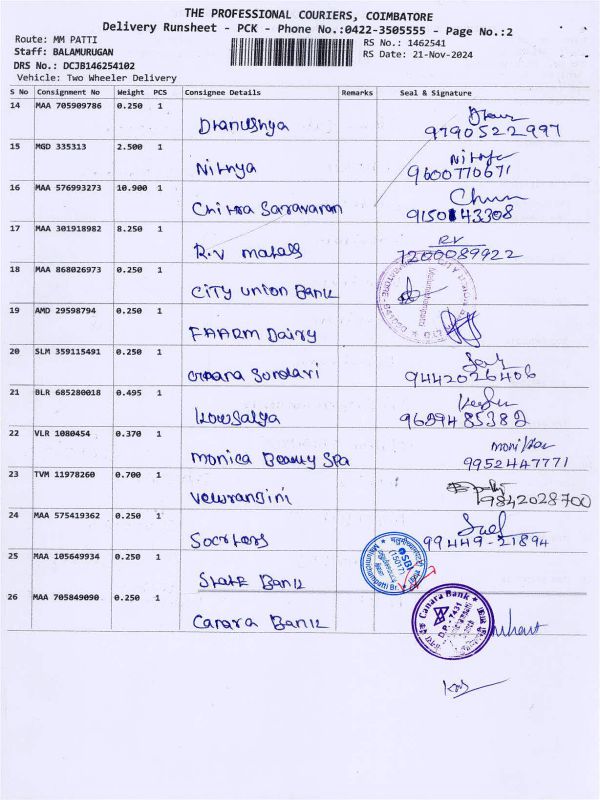 THE PROFESSIONAL COURIERS, COIMBATORE
Delivery Runsheet - PCK - Phone No.:0422-3505555 - Page No.:2
Route: MM PATTI
RS No.: 1462541
Staff: BALAMURUGAN
RS Date: 21-Nov-2024
DRS No.: DCJB146254102
Vehicle: Two Wheeler Delivery
S No Consignment No Weight PCS Consignee Details Remarks Seal & Signature
14 MAA 705909786 0.250 1
Dhanushya
9790522997
15 MGD 335313 2.500 1
Nithya
9600770671
16 MAA 576993273 10.900 1
Chithra Saravanan
9150143308
17 MAA 301918982 8.250 1
R.V mahals
RV
7200089922
18 MAA 868026973 0.250 1
City union Bank
19 AMD 29598794 0.250 1
FAARM Dairy
20 SLM 359115491 0.250 1
9442026406
21 BLR 685280018 0.495 1
Kowsalya
9659485382
22 VLR 1080454 0.370 1
monica Beauty SPa
9952447771
23 TVM 11978260 0.700 1
9842028700
24 MAA 575419362 0.250 1
99449-21894
25 MAA 105649934 0.250 1
State Bank
SBI
(15017)
26 MAA 705849090 0.250 1
Canara Bank
Canara Bank
D.P.-7431